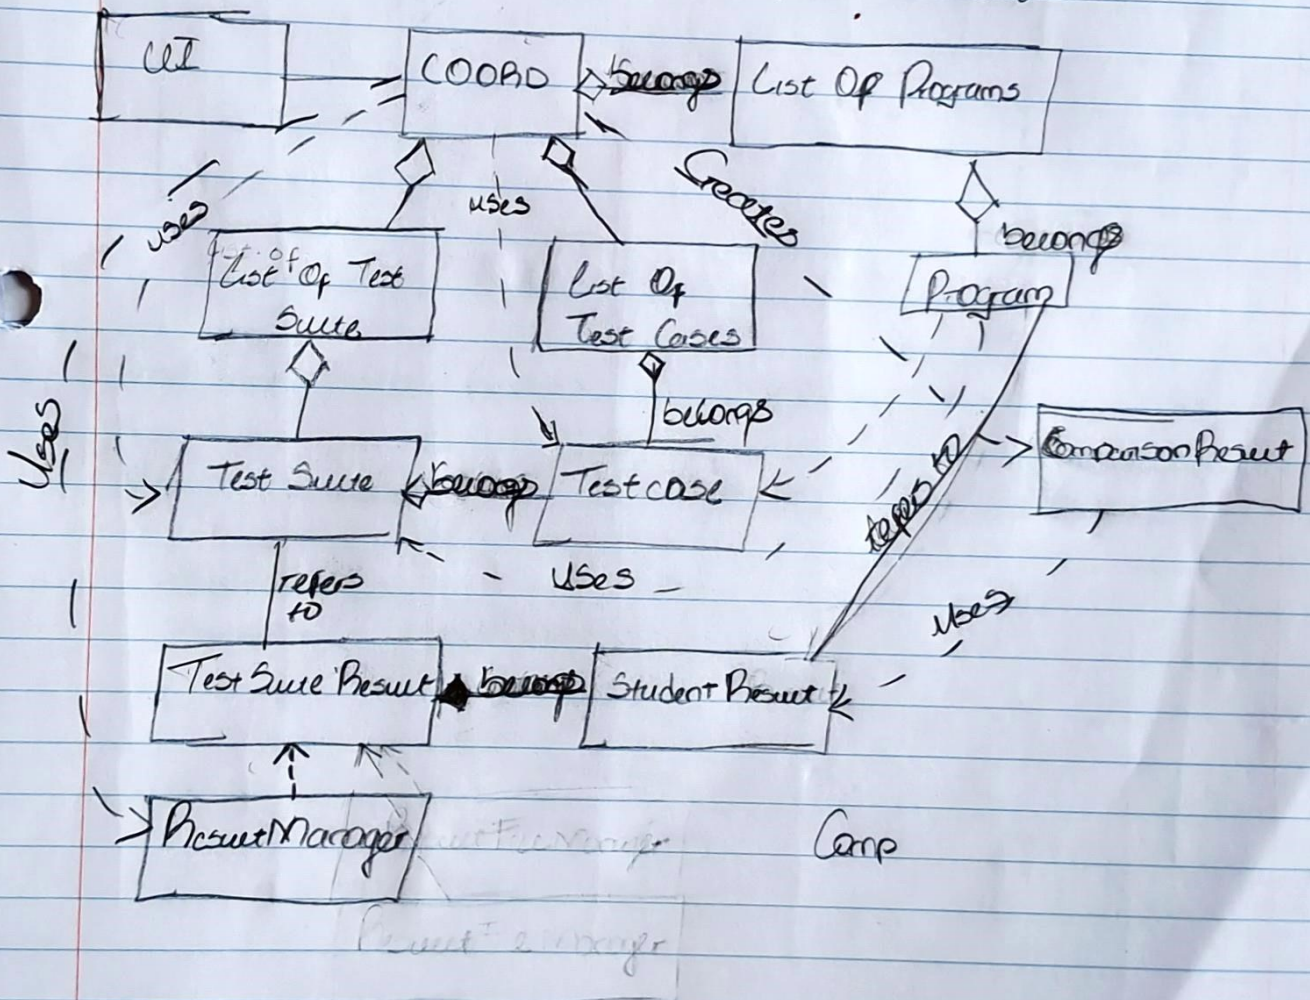 UI
COORD
belongs
List Of Programs
uses
uses
Creates
belongs
List Of Test
Suite
List Of
Test Cases
Program
Uses
belongs
Test Suite
belongs
Testcase
refers to
ComparisonResult
refers
to
uses
uses
TestSuiteResult
belongs
StudentResult
ResultManager
Comp